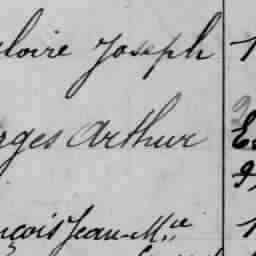 loire Joseph
rges Arthur
nçois Jean-M.ie